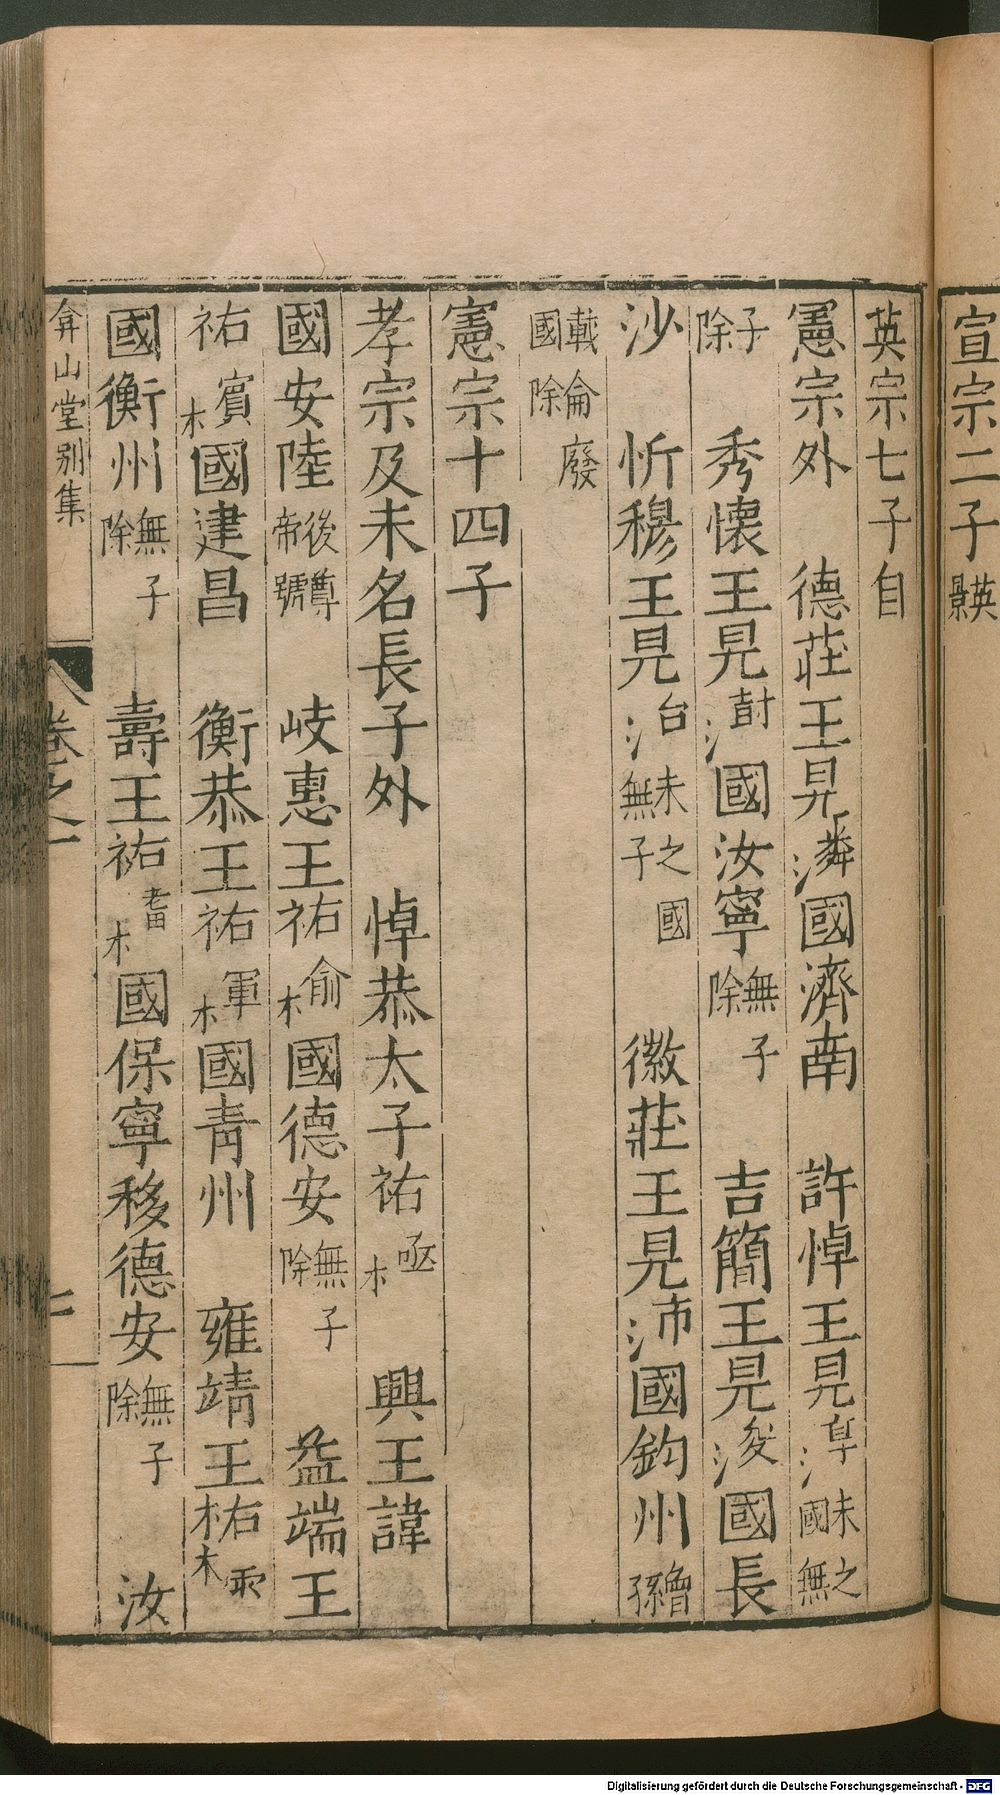 宣宗二子英景
英宗七子自
憲宗外　德莊王見潾國濟南　許悼王見淳未之國無
子除　秀懷王見澍國汝寧無子除　吉簡王見浚國長
沙　忻穆王見治未之國無子　徽莊王見沛國鈞州曾孫
載侖廢國除
憲宗十四子
孝宗及未名長子外　悼恭太子祐極　興王諱
國安陸後尊帝號　岐惠王祐榆國德安無子除　益端王
祐檳國建昌　衡恭王祐楎國青州　雍靖王祐
國衡州無子除　壽王祐榰國保寧移德安無子除　汝
弇山堂別集
卷之
Digitalisierung gefördert durch die Deutsche Forschungsgemeinschaft - DFG